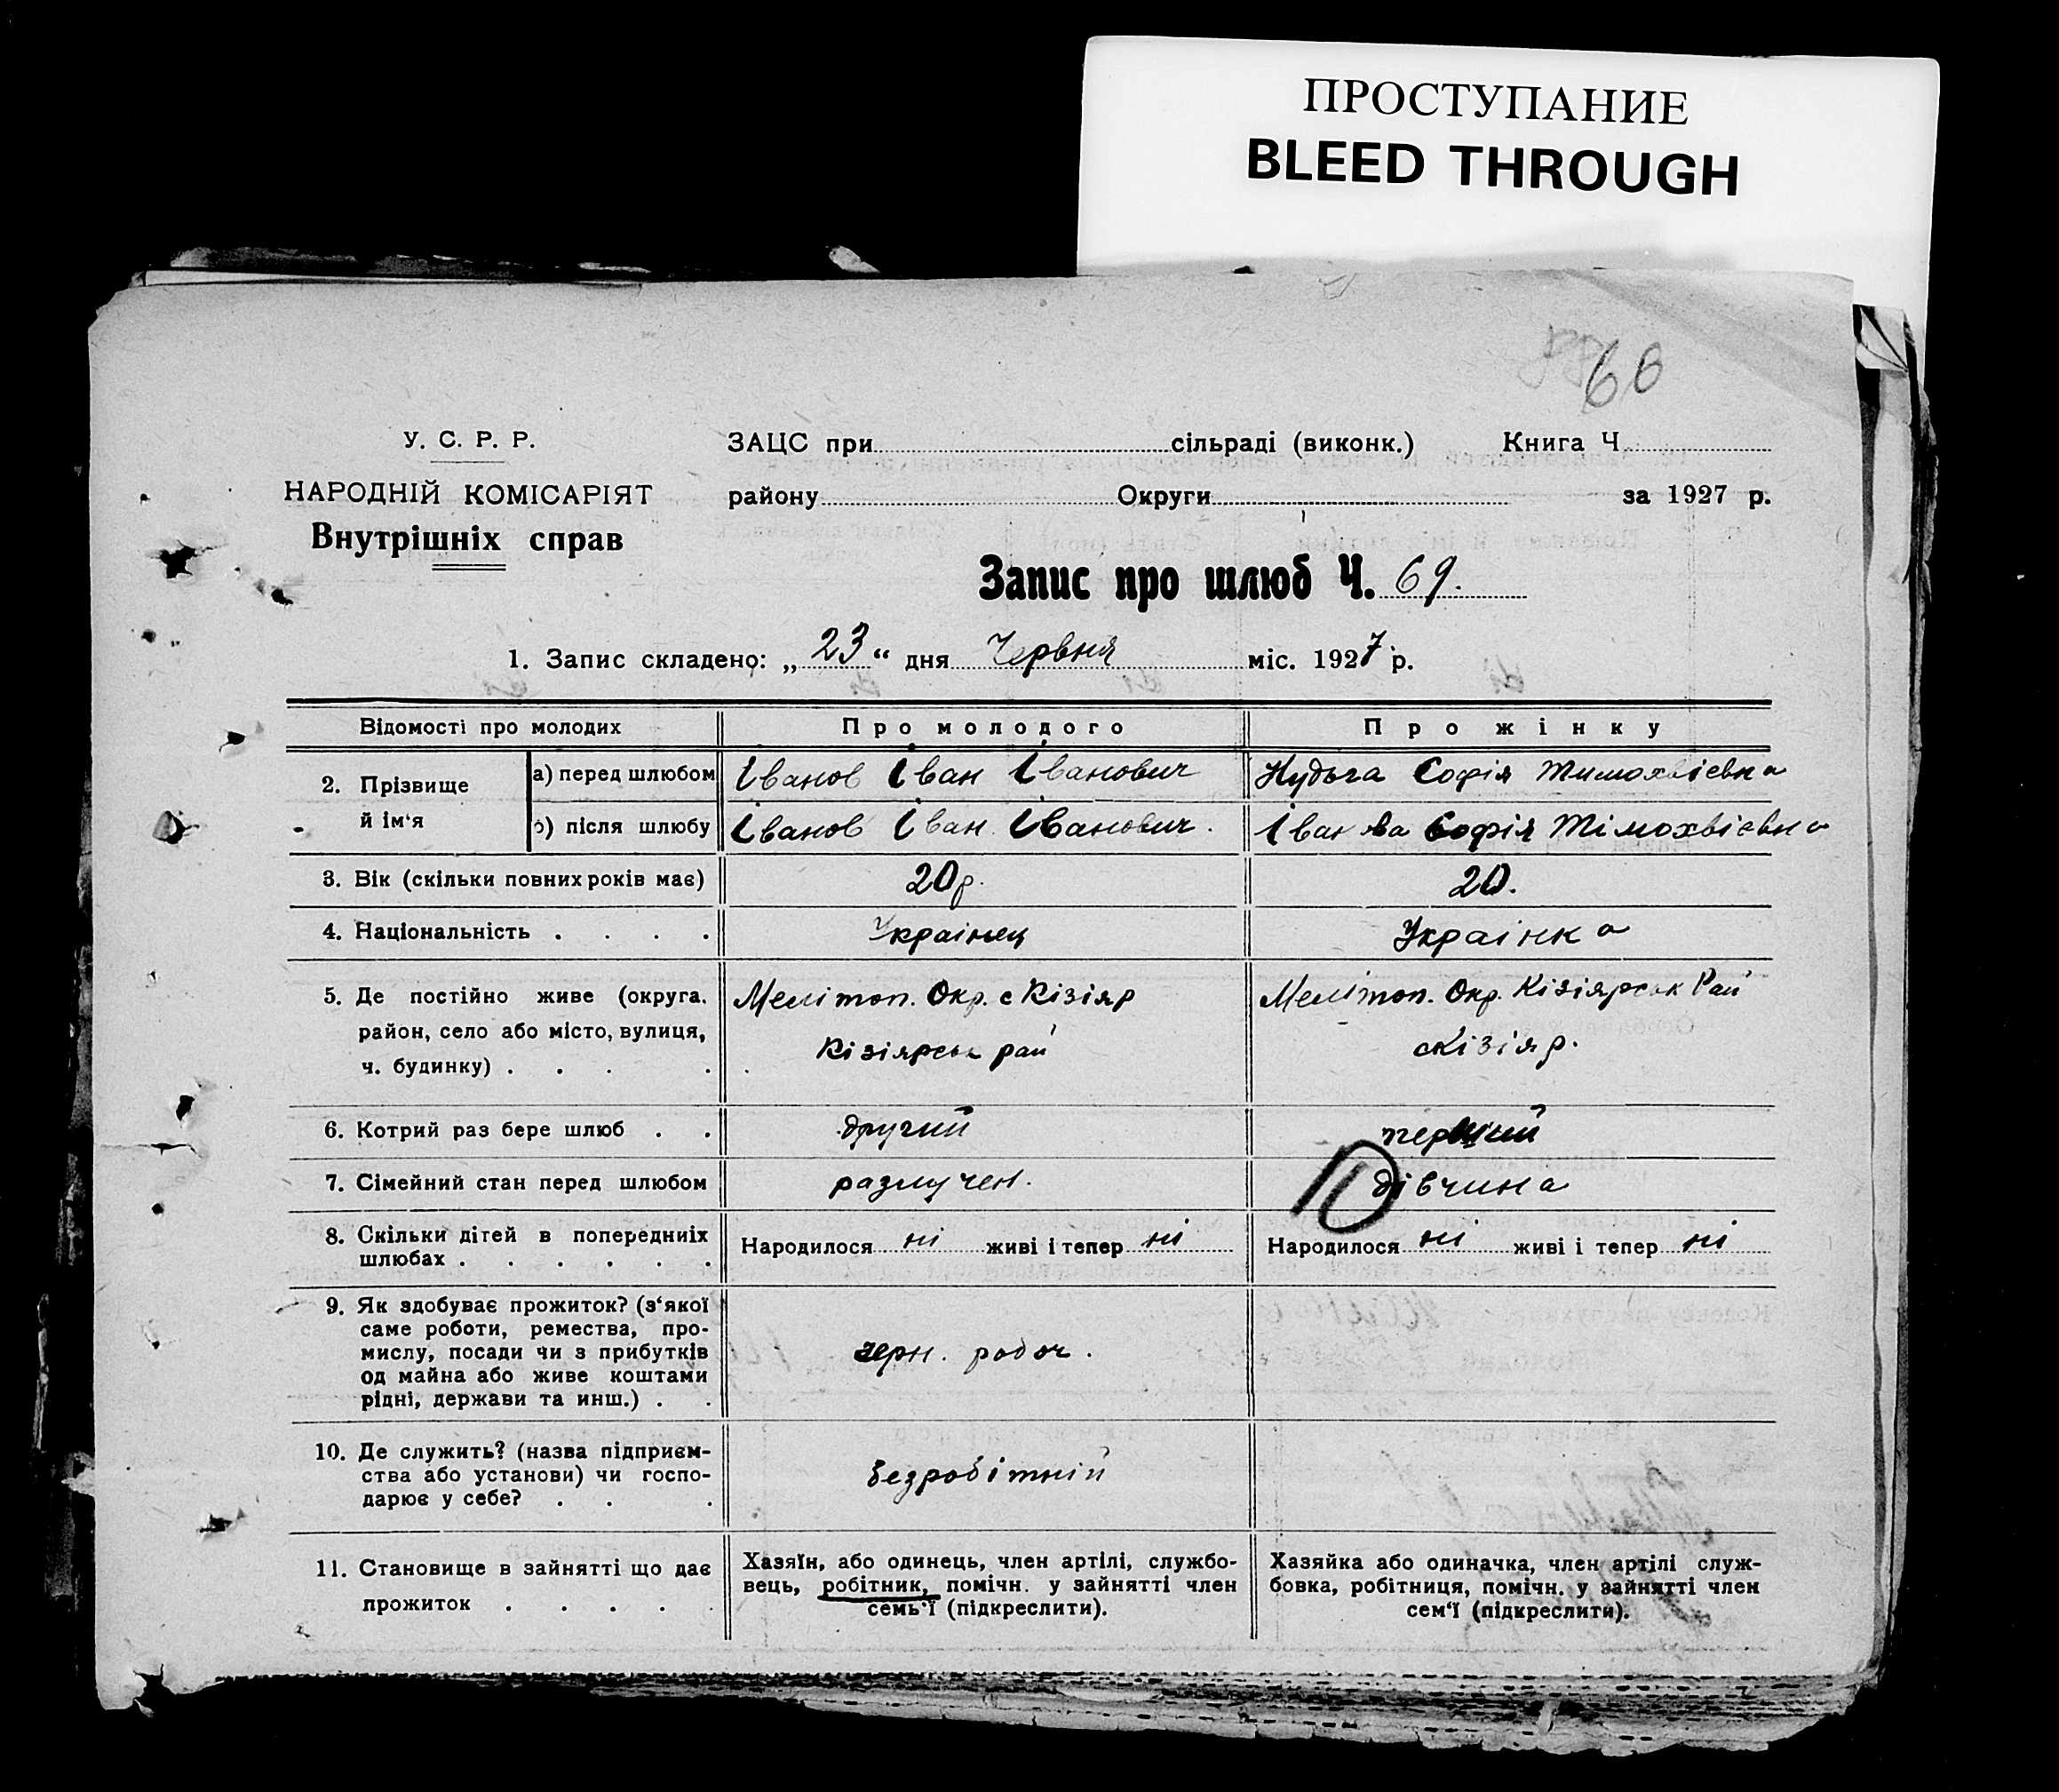 ПРОСТУПАНИЕ
BLEED THROUGH
60
У. С. Р. Р.
НАРОДНІЙ КОМІСАРІЯТ
Внутрішніх справ
ЗАЦС при сільраді (виконк.) Книга Ч.
району Округи за 1927 р.
Запис про шлюб Ч. 69.
1. Запис складено: „23“ дня Червня міс. 1927 р.
Відомості про молодих Про молодого Про жінку
2. Прізвище й ім‘я
а) перед шлюбом Іванов Іван Іванович Нудьга Софія Тимохвієвна
б) після шлюбу Іванов Іван Іванович. Іванова Софія Тімохвієвна
3. Вік (скільки повних років має) 20 р. 20.
4. Національність . . . . Українец Українка
5. Де постійно живе (округа.
район, село або місто, вулиця,
ч. будинку) . . . .
Меліт​оп. Окр. с Кізіяр
Кізіярськ рай
Меліт​оп. Окр. Кізіярськ Рай
с Кізіяр.
6. Котрий раз бере шлюб . . другий первий
7. Сімейний стан перед шлюбом разлучен. дівчина
10
8. Скільки дітей в попередніх
шлюбах . . . . . .
Народилося ні живі і тепер ні
Народилося ні живі і тепер ні
9. Як здобуває прожиток? (з‘якої
саме роботи, ремества, про-
мислу, посади чи з прибутків
од майна або живе коштами
рідні, держави та инш.) . .
черн. робоч.
10. Де служить? (назва підприєм-
ства або установи) чи госпо-
дарює у себе? . . .
безробітній
11. Становище в зайнятті що дає
прожиток . . . . .
Хазяїн, або одинець, член артілі, службо-
вець, робітник, помічн. у зайнятті член
семь‘ї (підкреслити).
Хазяйка або одиначка, член артілі служ-
бовка, робітниця, помічн. у зайнятті член
сем‘ї (підкреслити).